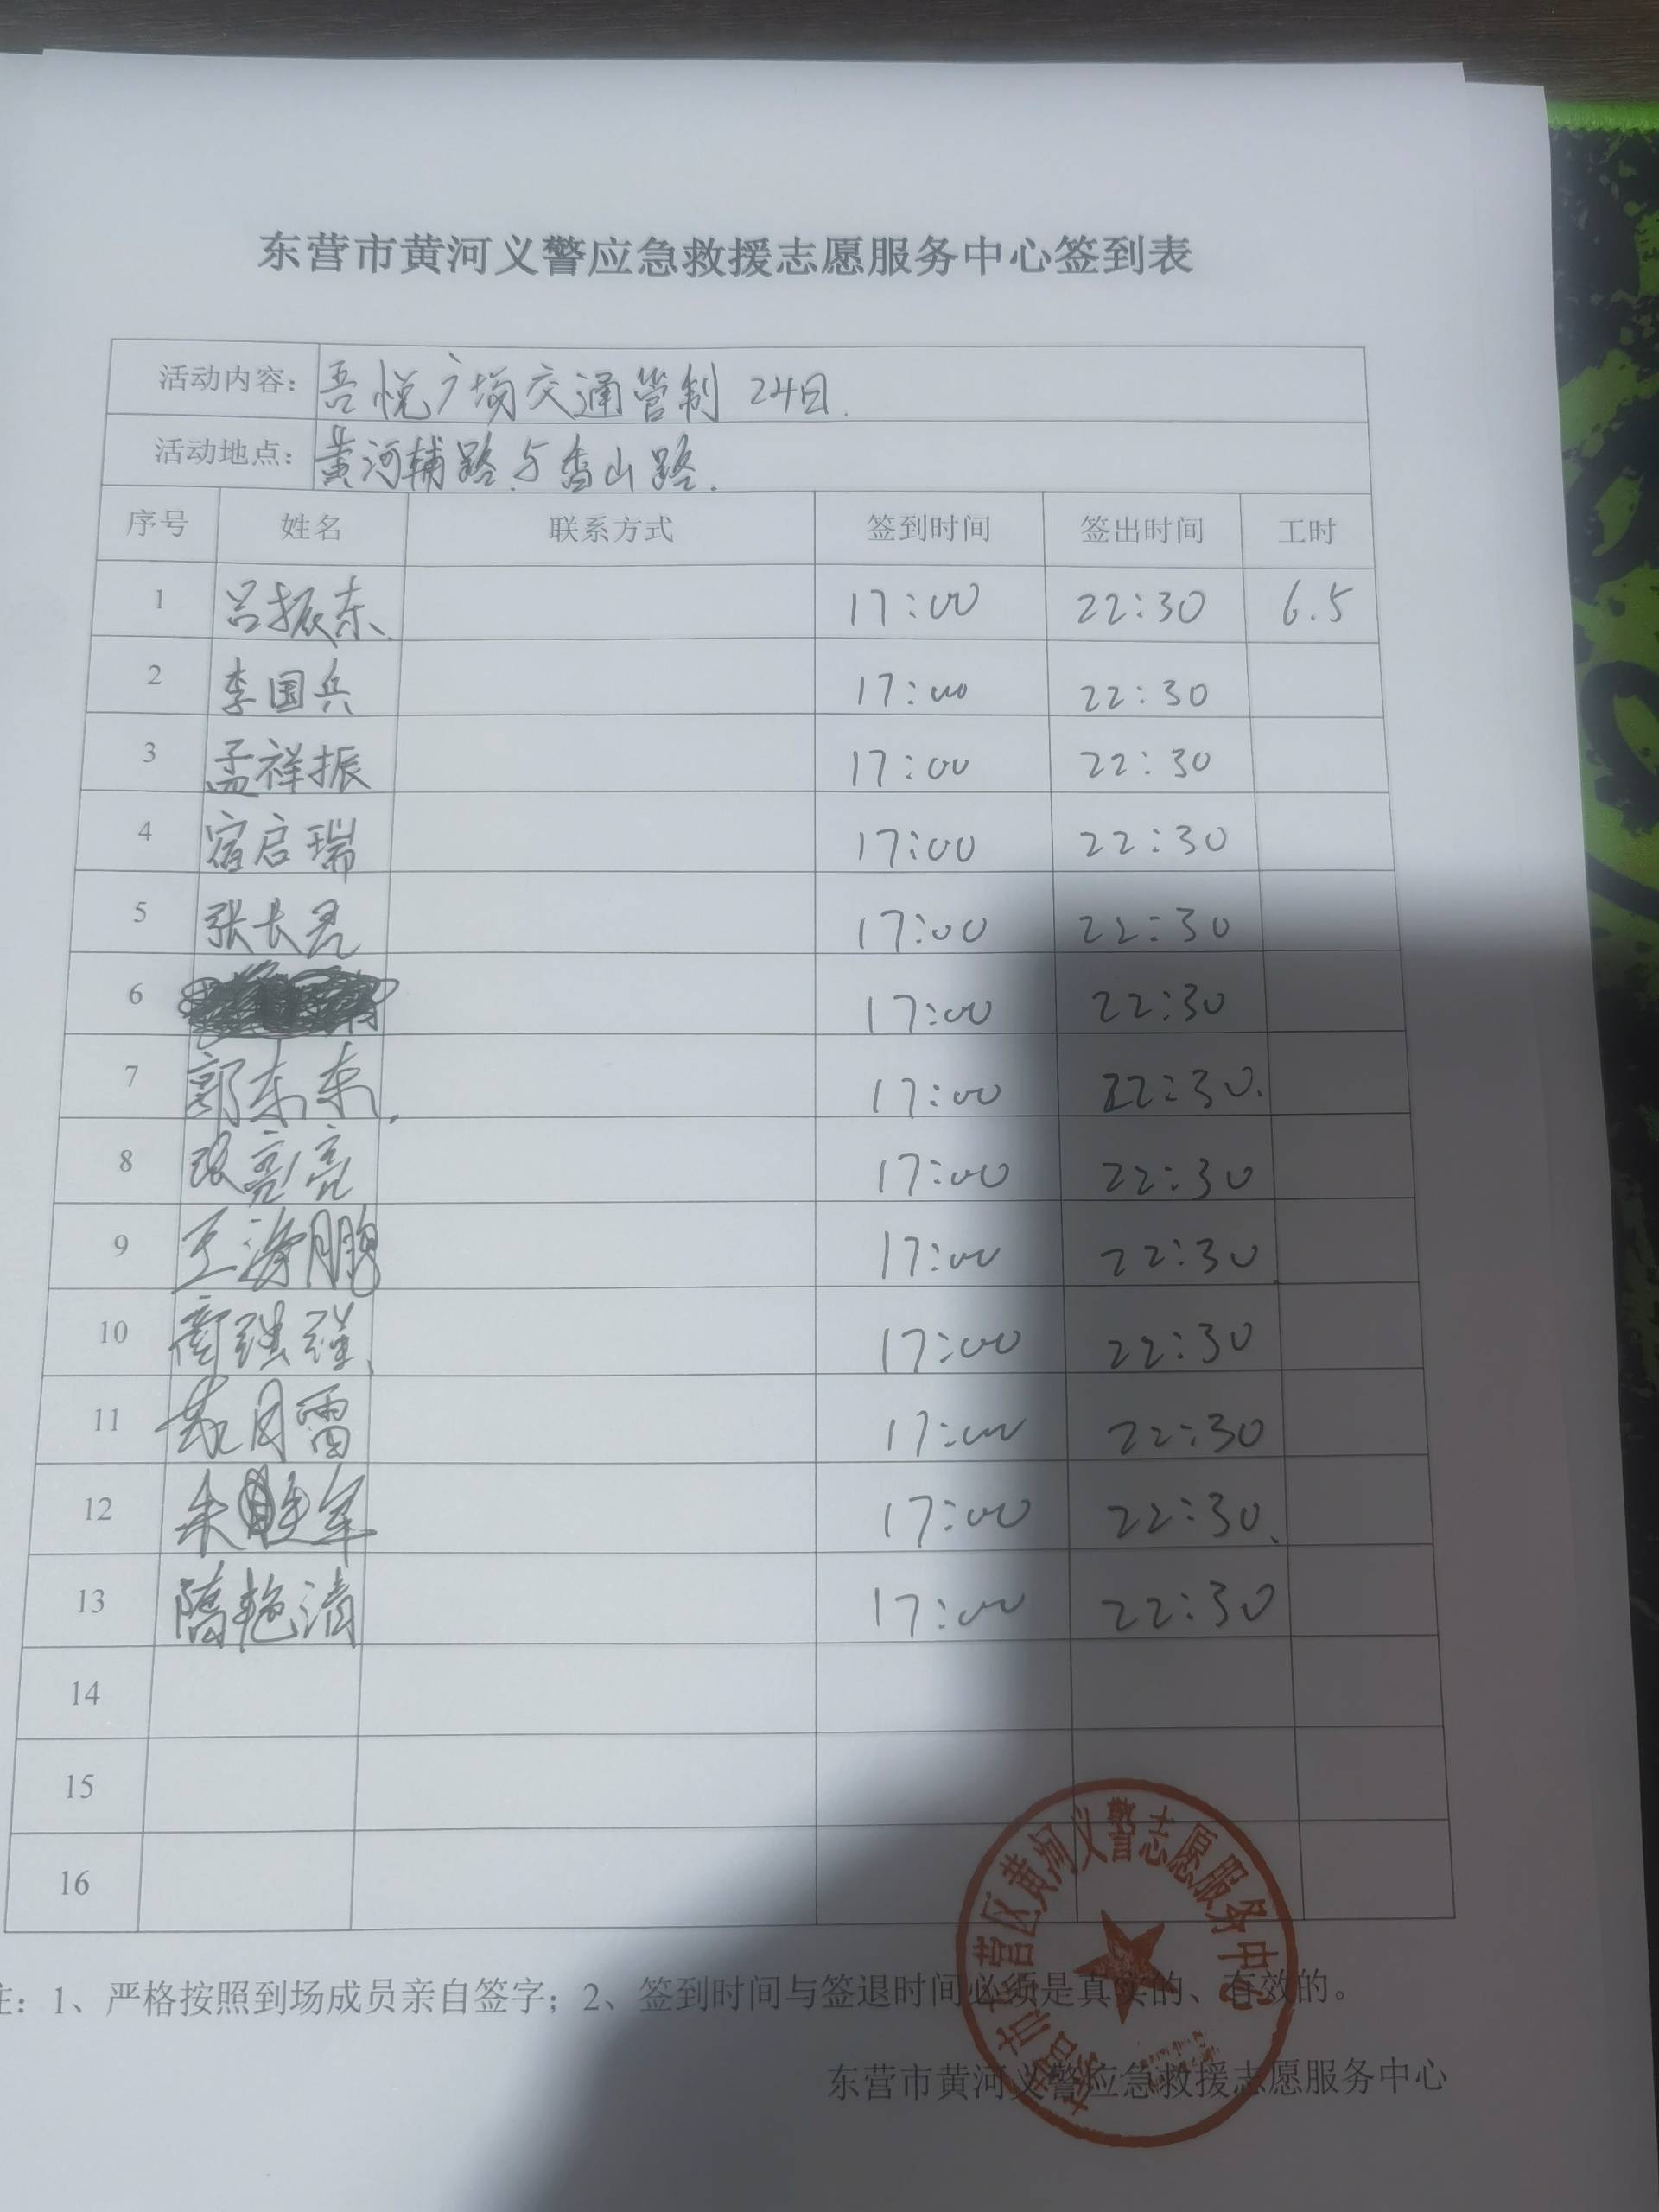 东营市黄河义警应急救援志愿服务中心签到表
活动内容: 吾悦广场交通管制 24日.
活动地点: 黄河辅路与香山路.
序号 姓名 联系方式 签到时间 签出时间 工时
1 吕振东 17:00 22:30 6.5
2 李国兵 17:00 22:30
3 孟祥振 17:00 22:30
4 宿启瑞 17:00 22:30
5 张长君 17:00 22:30
6 17:00 22:30
7 郭东东 17:00 22:30
8 亮亮 17:00 22:30
9 王海鹏 17:00 22:30
10 17:00 22:30
11 月雷 17:00 22:30
12 朱 军 17:00 22:30
13 隋艳清 17:00 22:30
14
15
16
注：1、严格按照到场成员亲自签字；2、签到时间与签退时间必须是真实的、有效的。
东营市黄河义警应急救援志愿服务中心
东营市东营区黄河义警志愿服务中心